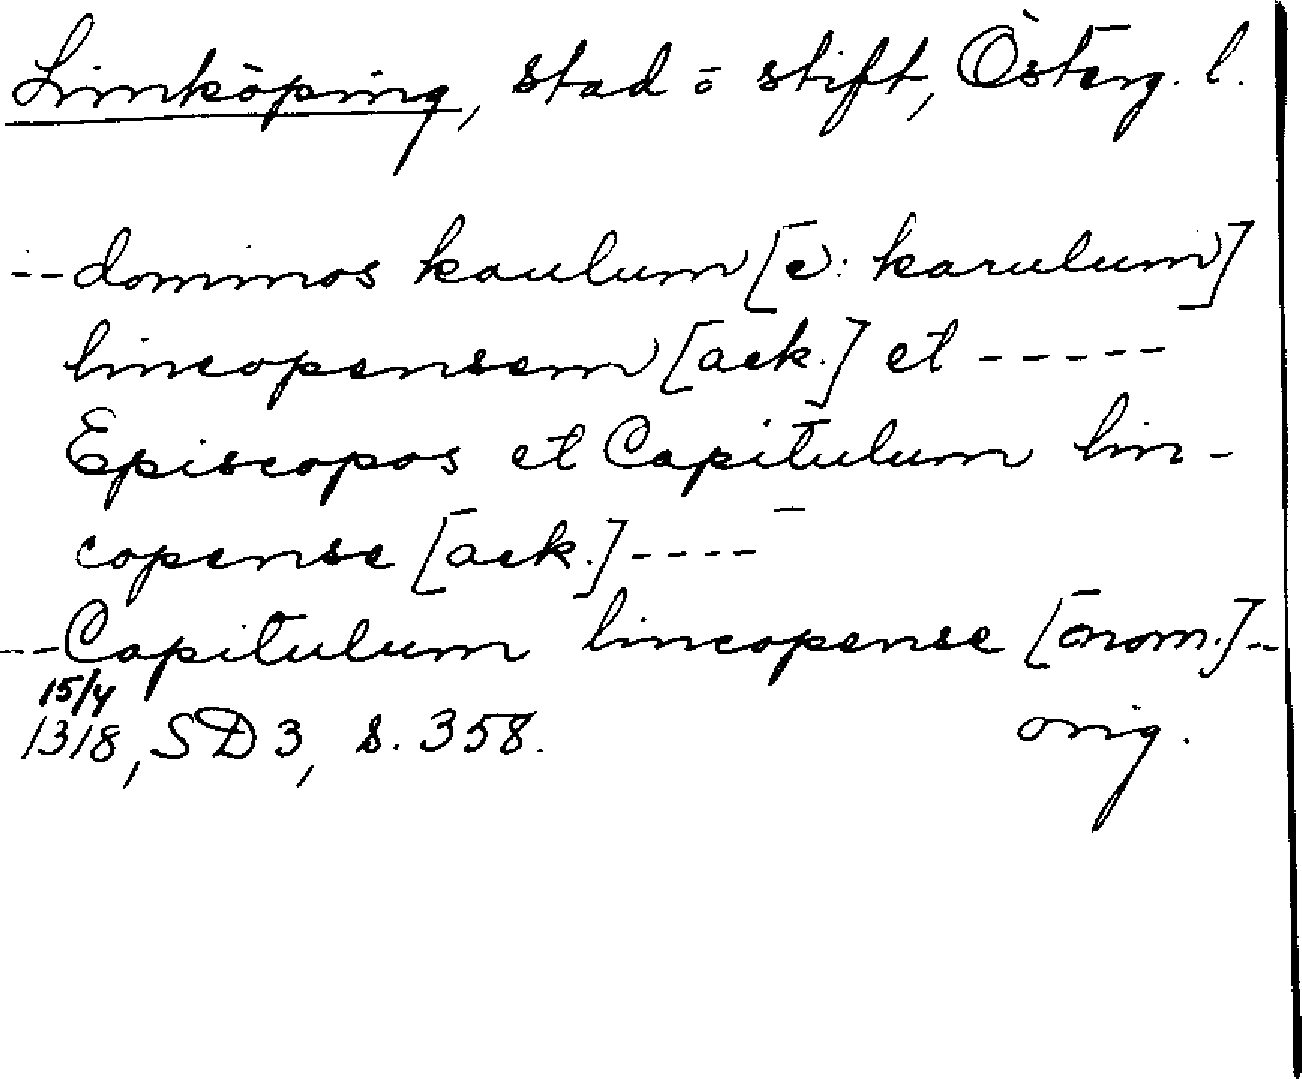 Linköping, stad o stift, Österg. l.
--dominos kaulum [ɔ: karulum]
lincopensem [ack.] et -----
Episcopos et Capitulum lin-
copense [ack.] ----
---Capitulum lincopense [nom.]--
15/4
1318, SD 3, s. 358. orig.